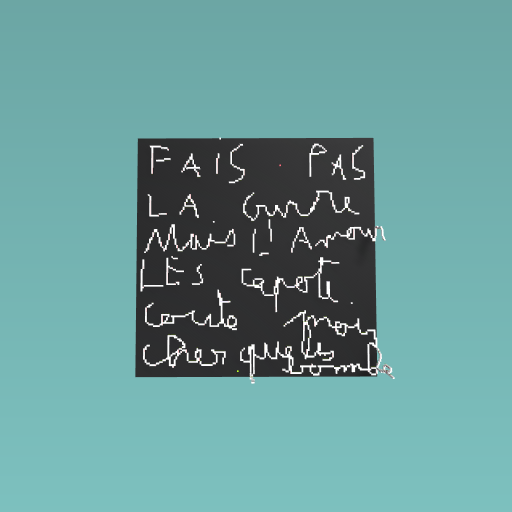 FAIS PAS
LA Guerre
Mais L'Amour
LES capote
coute moin
cher que les
bombe